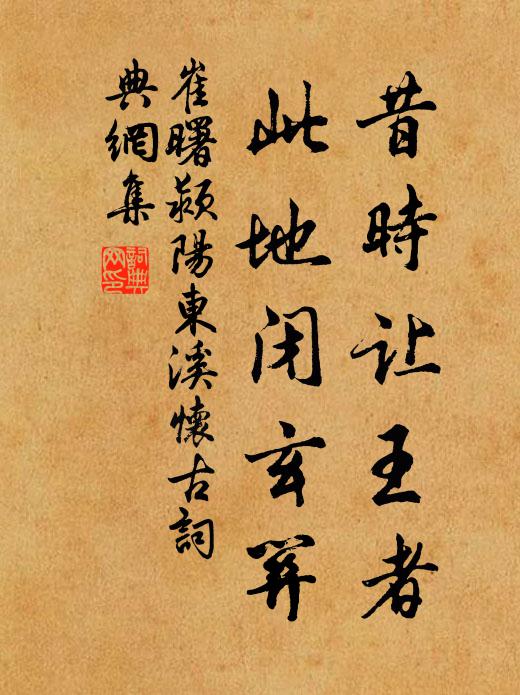 昔時让王者
此地闭玄關
崔曙颍陽東溪懷古詞
典網集
詞典網印